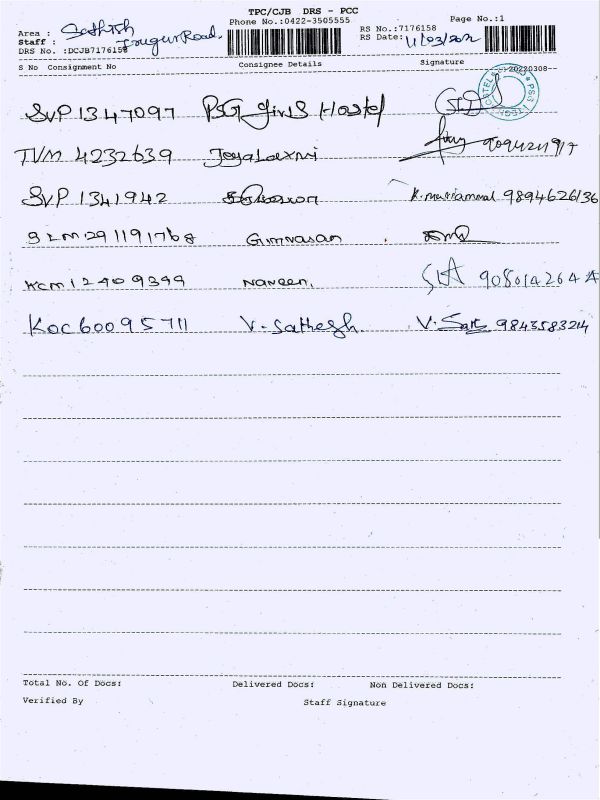 TPC/CJB DRS - PCC
Phone No.:0422-3505555
Page No.:1
Area : Sathish
Staff : Irugur Road.
DRS No. :DCJB7176158
RS No.:7176158
RS Date: 11/03/202
S No Consignment No Consignee Details Signature
20220308
SVP 1347097 PSG Girls Hostel
TVM 4232639 Jeyalaxmi
SVP 1341942 K. Mariammal 9894626136
SLM 291191768
KCM 12409399 Naveen.
KOC60095711 V. Sathesh. V. Sat 9843583214
Total No. Of Docs: Delivered Docs: Non Delivered Docs:
Verified By Staff Signature